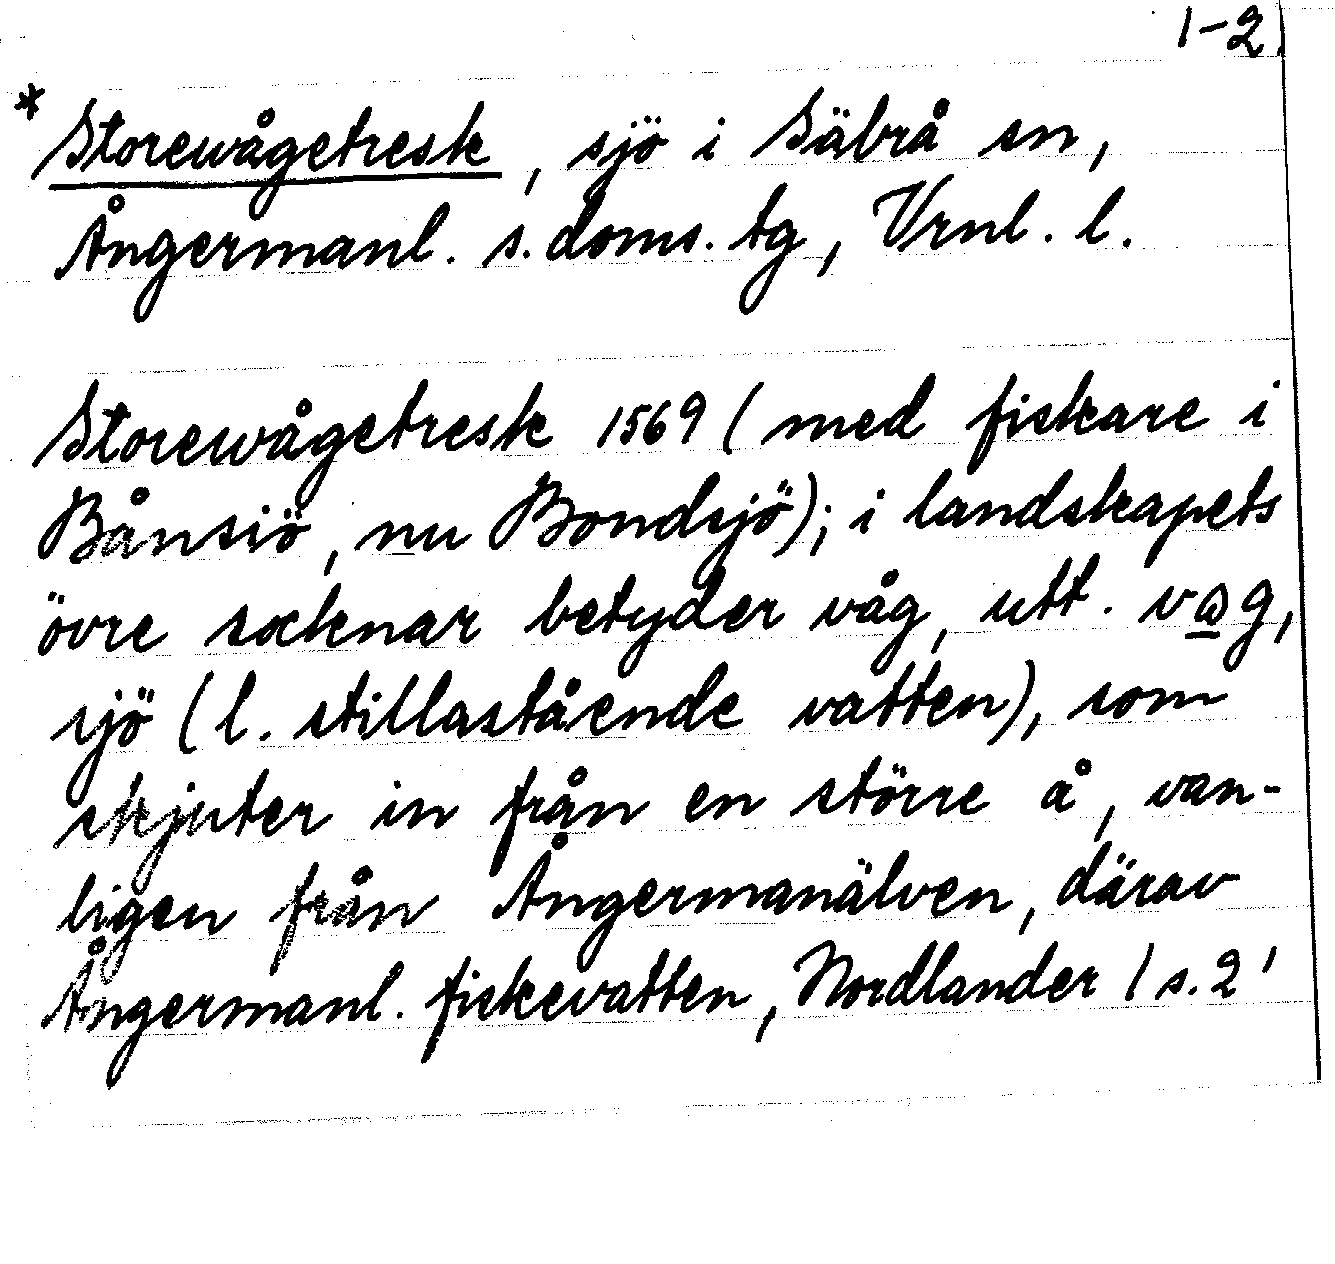 1-2
* Storewågetresk, sjö i Säbrå sn,
Ångermanl. s. doms. tg, Vrnl. l.
Storewågetresk 1569 (med fiskare i
Bånsiö, nu Bondsjö); i landskapets
övre socknar betyder våg, utt. vag,
sjö (l. stillastående vatten), som
skjuter in från en större å, van-
ligen från Ångermanälven, därav
Ångermanl. fiskevatten, Nordlander 1 s. 2'